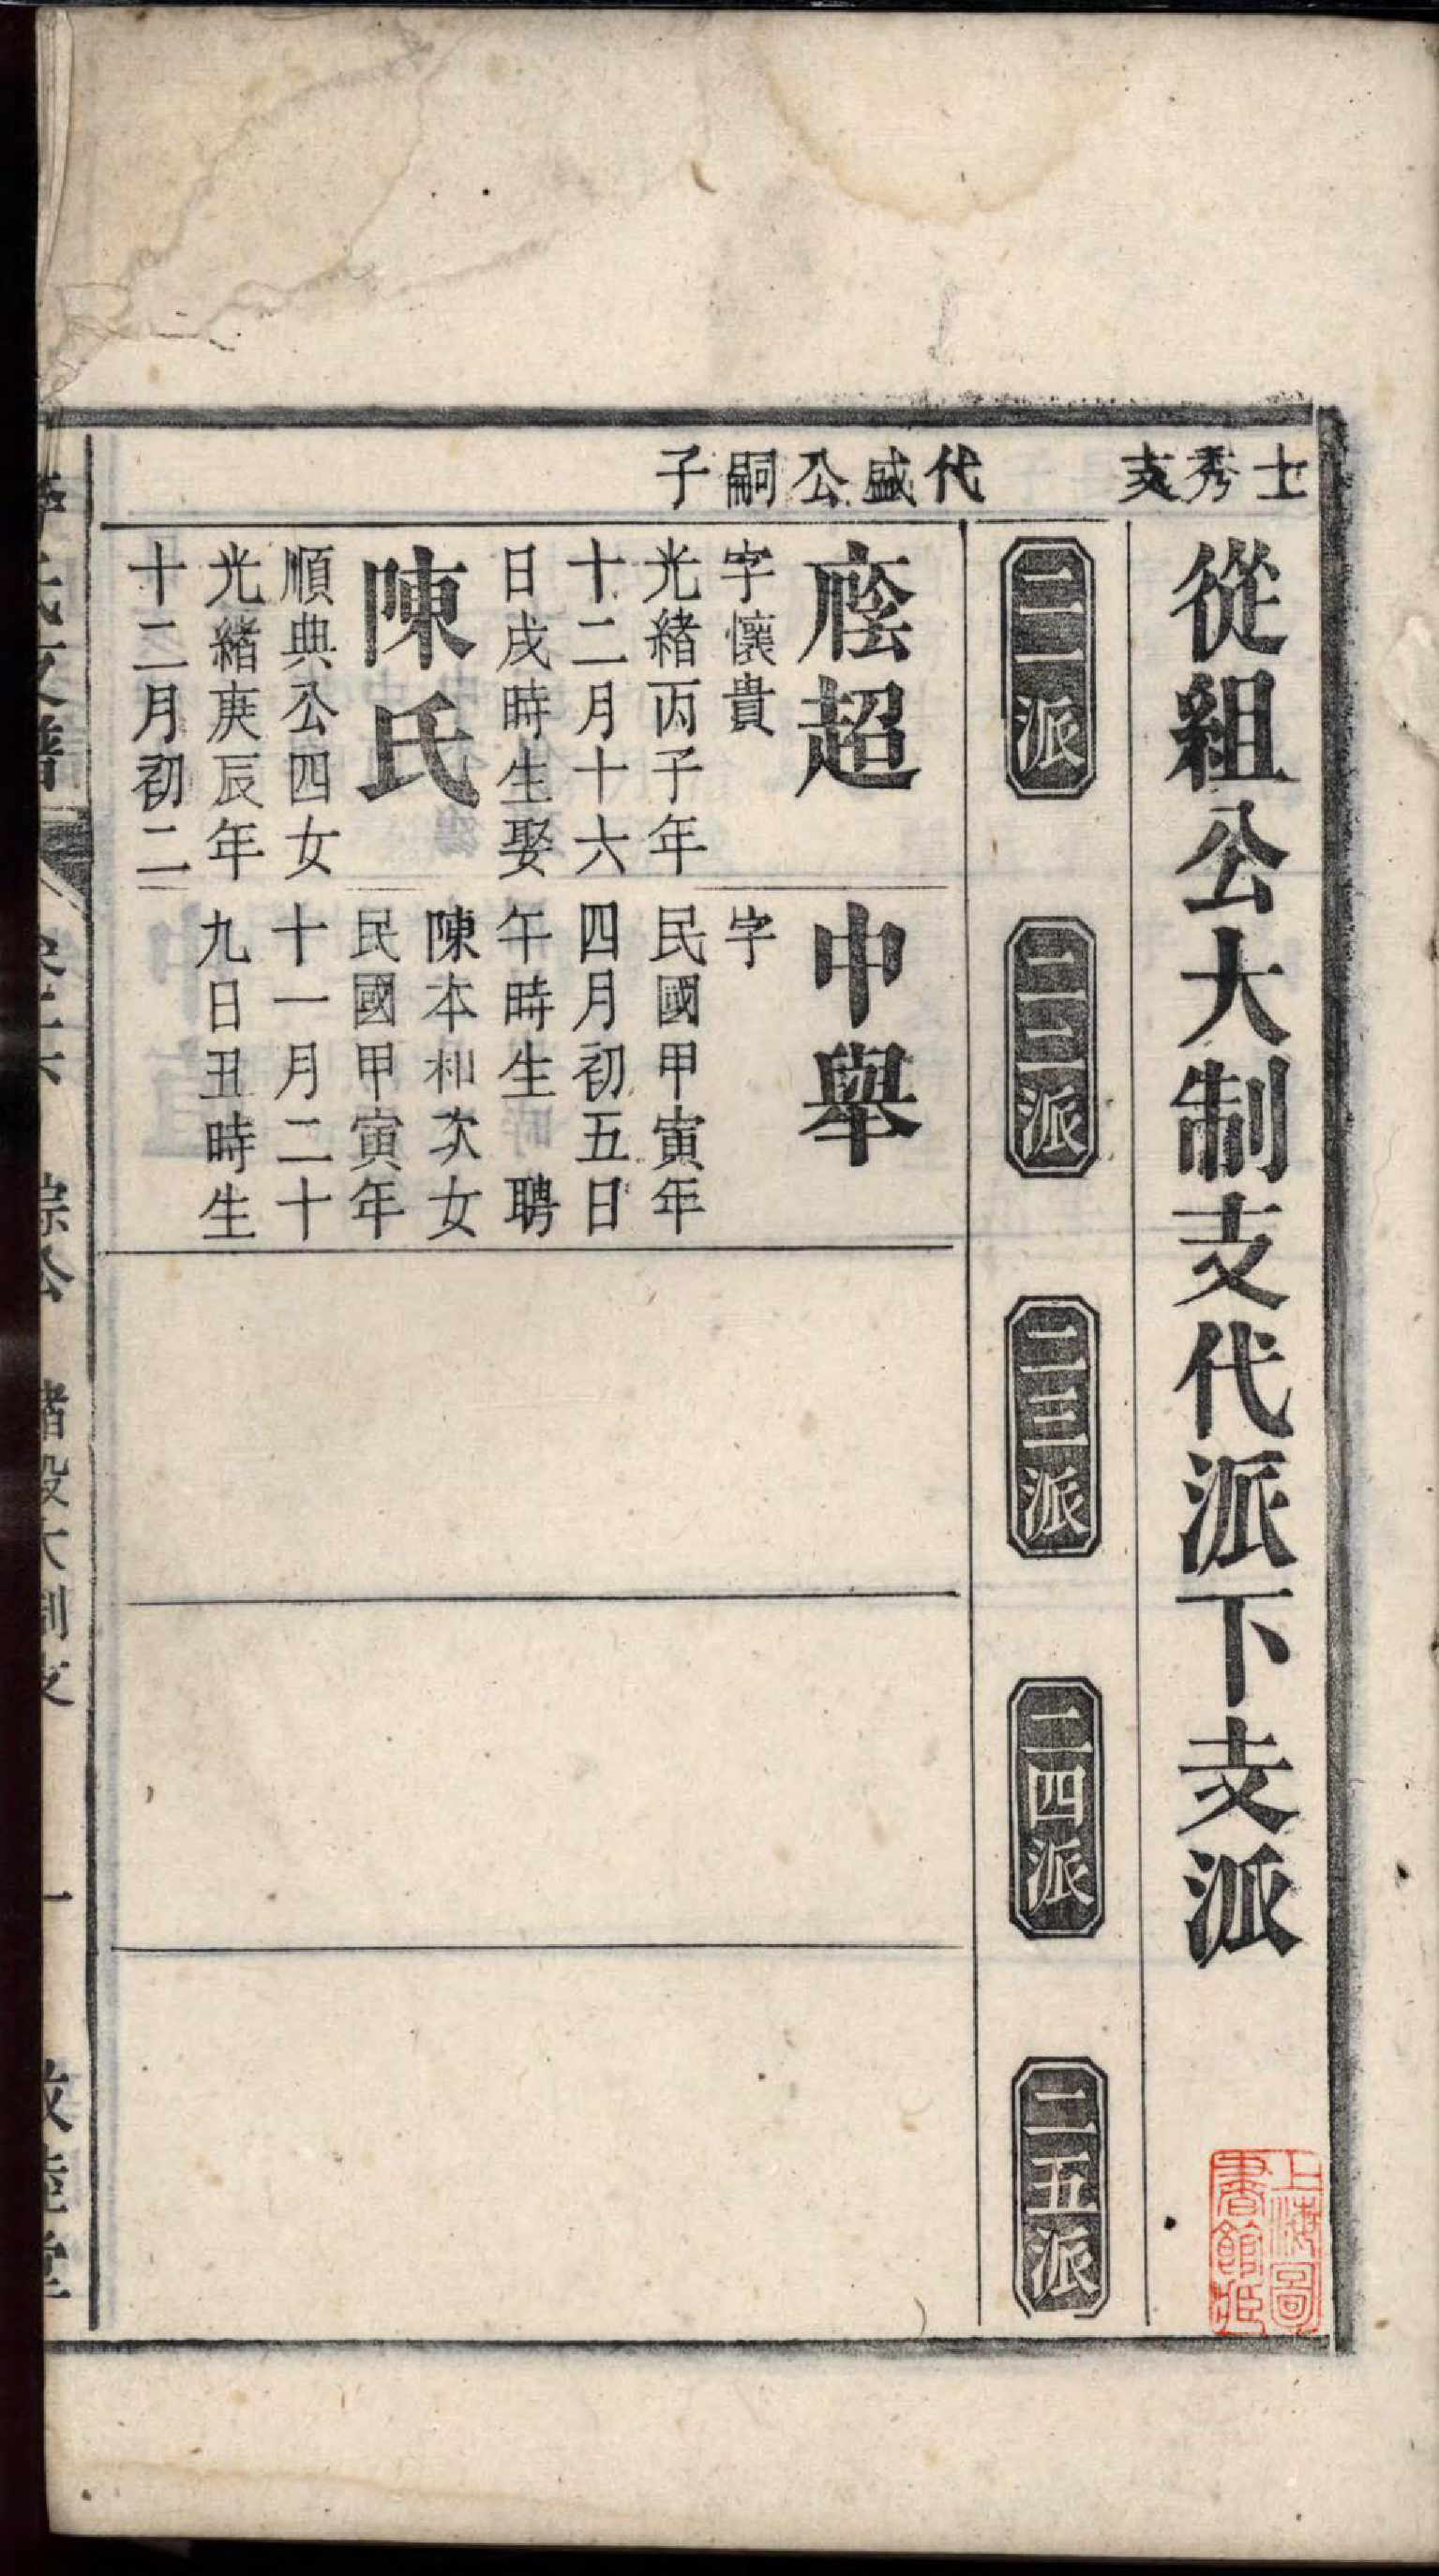 士秀支
從組公大制支代派下支派
二一派
二二派
二三派
二四派
二五派
代盛公嗣子
廕超
字懷貴
光緒丙子年
十二月十六
日戌時生娶
陳氏
順典公四女
光緒庚辰年
十二月初二
中舉
字
民國甲寅年
四月初五日
午時生 聘
陳本和次女
民國甲寅年
十一月二十
九日丑時生
大制支
一
上海圖
書館藏